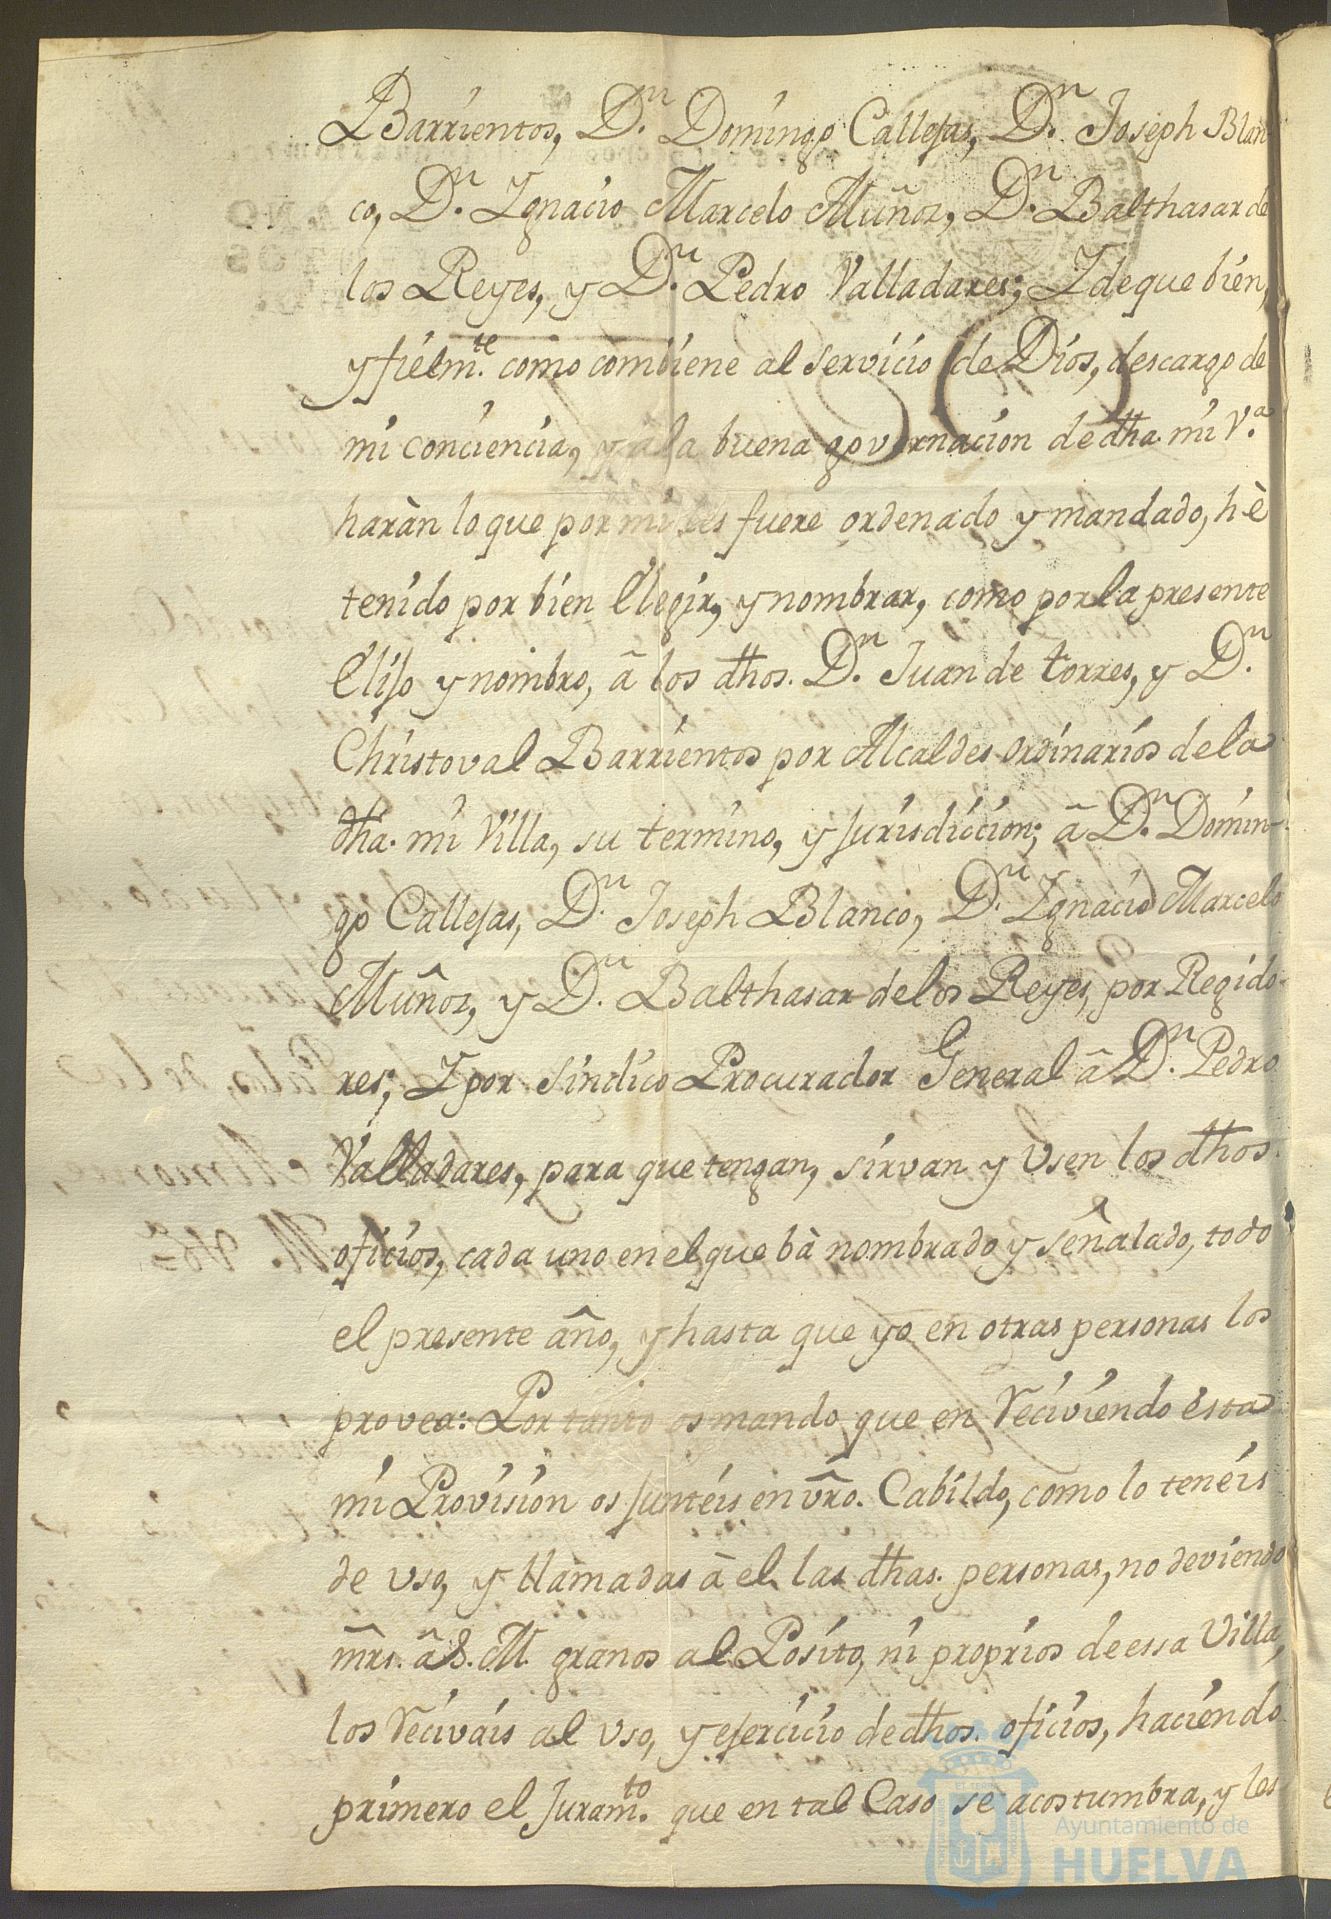 Barrientos, Dn. Domingo Callejas, Dn. Joseph Blan
co, Dn. Ygnacio Marcelo Muñoz, Dn. Balthasar de
los Reyes, y Dn. Pedro Valladares; Y de que bien,
y fielmte. como combiene al servicio de Dios, descargo de
mi conciencia, y à la buena governacion de dha. mi Va.
haràn lo que por mi les fuere ordenado y mandado, hè
tenido por bien Elegir, y nombrar, como por la presente
Elijo y nombro, â los dhos. Dn. Juan de torres, y Dn.
Christoval Barrientos por Alcaldes ordinarios de la
dha. mi Villa, su termino, y jurisdiccion; â Dn. Domin-
go Callejas, Dn. Joseph Blanco, Dn. Ygnacio Marcelo
Muñoz, y Dn. Balthasar de los Reyes, por Regido-
res; Y por Sindico Procurador General â Dn. Pedro
Valladares, para que tengan, sirvan y Vsen los dhos.
oficios, cada uno en el que bà nombrado y señalado, todo
el presente año, y hasta que yo en otras personas los
provea: Por tanto os mando que en reciviendo esta
mi Provision os junteis en vrô. Cabildo, como lo teneis
de uso, y llamadas â el las dhas. personas, no deviendo
mrs̃. â S. M. granos al Posito, ni proprios de essa Villa,
los recivais al uso, y ejercicio de dhos. oficios, haciendo
primero el Juramto. que en tal Caso se acostumbra, y los
Ayuntamiento de
HUELVA